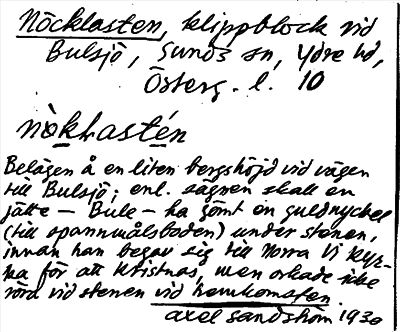 Nöcklasten, klippblock vid
Bulsjö, Sunds sn, Ydre hd,
Österg. l. 10
nòkḷastén
Belägen å en liten bergshöjd vid vägen
till Bulsjö; enl. sägnen skall en
jätte – Bule – ha gömt en guldnyckel
(till spannmålsboden) under stenen,
innan han begav sig till Norra Vi kyr-
ka för att kristnas, men orkade icke
röra vid stenen vid hemkomsten.
Axel Sandström 1930